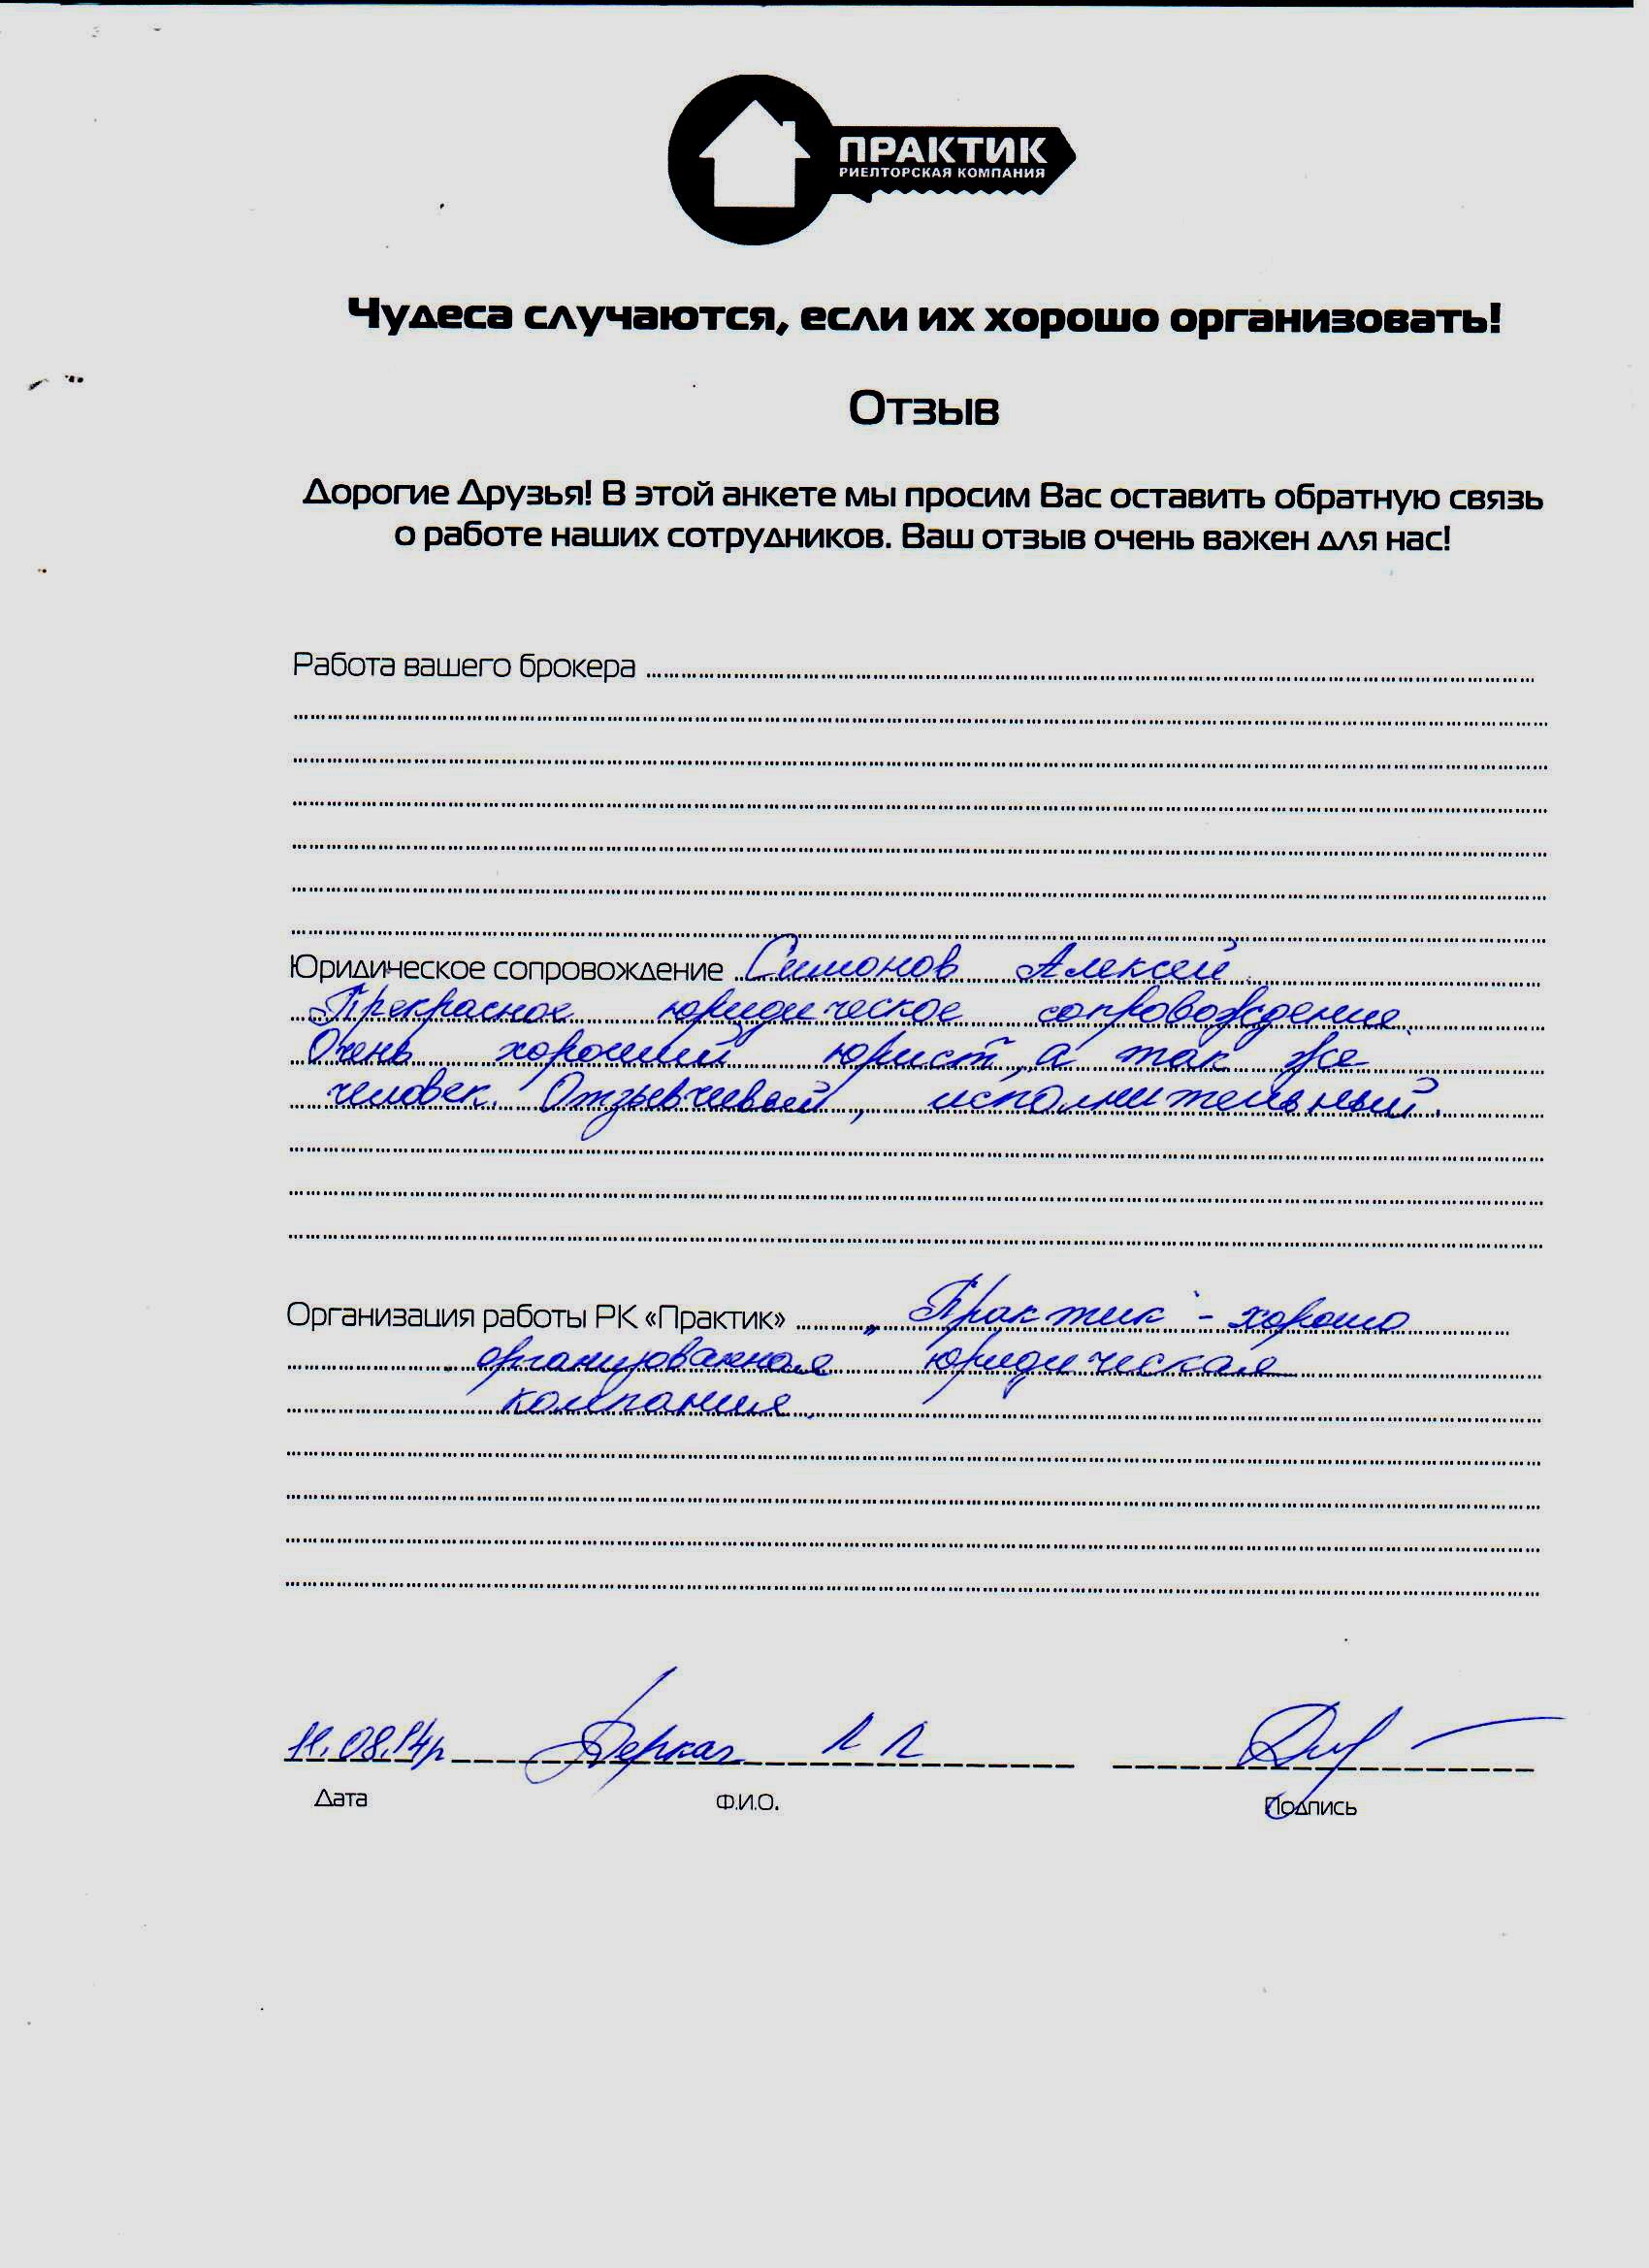 ПРАКТИК
РИЕЛТОРСКАЯ КОМПАНИЯ
Чудеса случаются, если их хорошо организовать!
Отзыв
Дорогие Друзья! В этой анкете мы просим Вас оставить обратную связь
о работе наших сотрудников. Ваш отзыв очень важен для нас!
Работа вашего брокера
Юридическое сопровождение Симонов Алексей.
Прекрасное юридическое сопровождение.
Очень хороший юрист, а так же
человек. Отзывчивый, исполнительный.
Организация работы РК «Практик» „Практик" - хорошо
организованная юридическая
компания.
11.08.14г Деркач Л Л
Дата Ф.И.О. Подпись